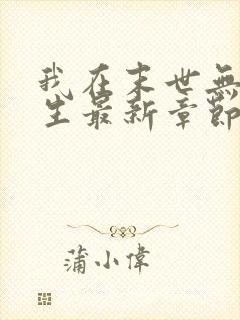 我在末世無
生最新章節
蒲小偉